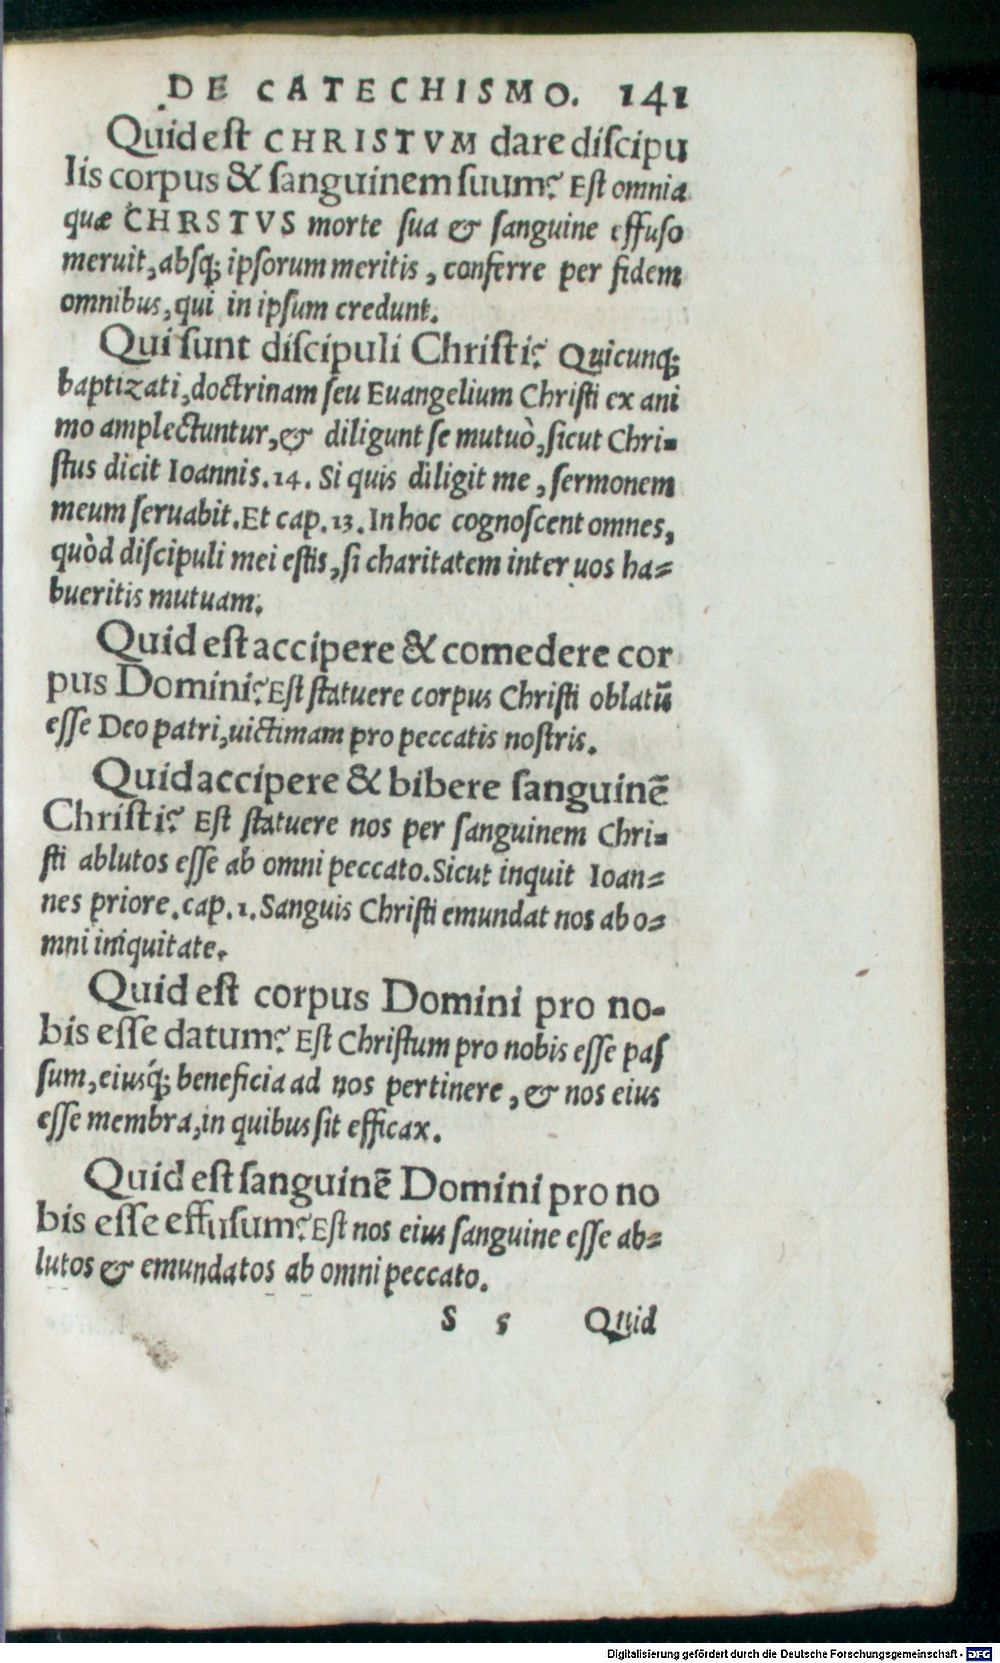 DE CATECHISMO. 141
Quid est CHRISTVM dare discipu
lis corpus & sanguinem suum? Est omnia
quæ CHRSTVS morte sua & sanguine effuso
meruit, absq; ipsorum meritis, conferre per fidem
omnibus, qui in ipsum credunt.
Qui sunt discipuli Christi? Quicunq;
baptizati, doctrinam seu Euangelium Christi ex ani
mo amplectuntur, & diligunt se mutuò, sicut Chri-
stus dicit Ioannis. 14. Si quis diligit me, sermonem
meum seruabit. Et cap. 13. In hoc cognoscent omnes,
quòd discipuli mei estis, si charitatem inter uos ha-
bueritis mutuam.
Quid est accipere & comedere cor
pus Domini? Est statuere corpus Christi oblatū
esse Deo patri, uictimam pro peccatis nostris.
Quid accipere & bibere sanguinē
Christi? Est statuere nos per sanguinem Chri-
sti ablutos esse ab omni peccato. Sicut inquit Ioan-
nes priore. cap. 1. Sanguis Christi emundat nos ab o-
mni iniquitate.
Quid est corpus Domini pro no-
bis esse datum? Est Christum pro nobis esse pas
sum, eiusq́; beneficia ad nos pertinere, & nos eius
esse membra, in quibus sit efficax.
Quid est sanguinē Domini pro no
bis esse effusum? Est nos eius sanguine esse ab-
lutos & emundatos ab omni peccato.
S 5 Quid
Digitalisierung gefördert durch die Deutsche Forschungsgemeinschaft - DFG